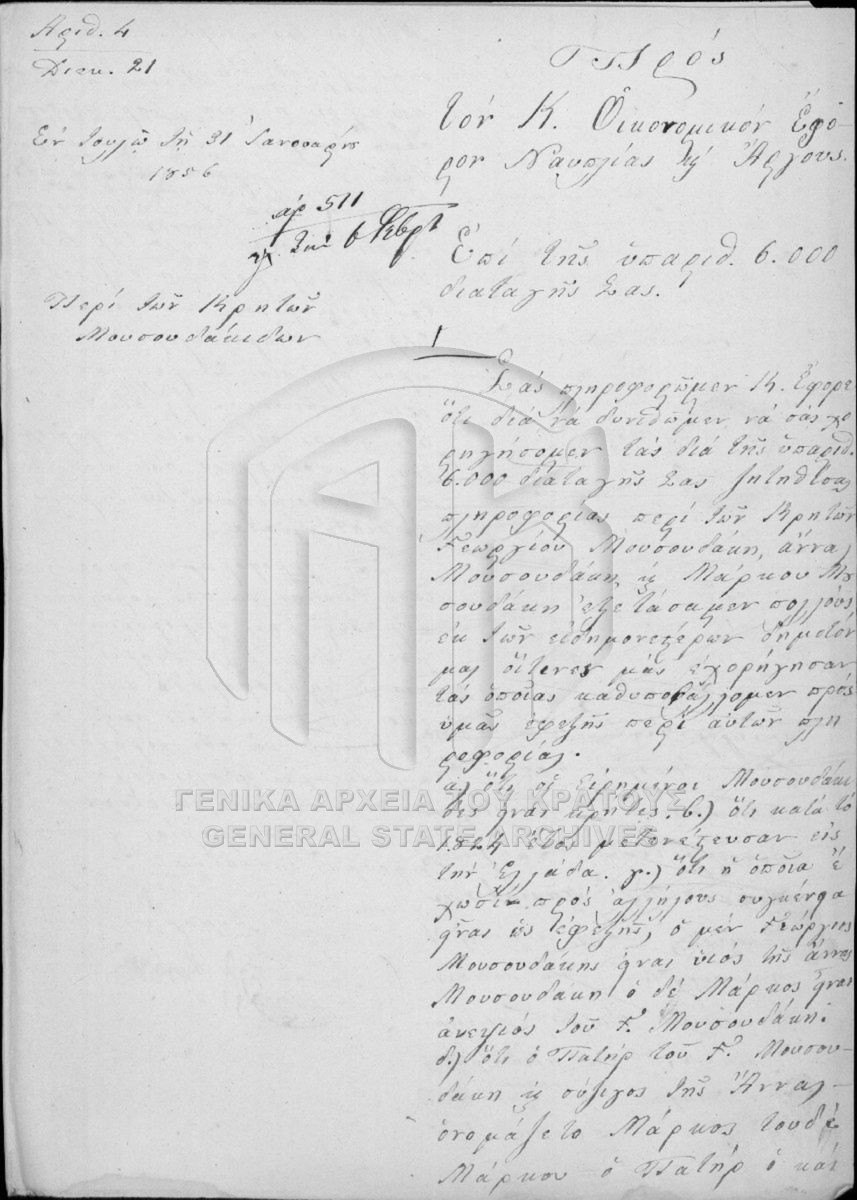 Αριθ. 4
Διεκ. 21
Εν Τουλῶ τῇ 31 Ἰανουαρίου
1856
ἀρ 511
τὴν 6 Φεβρ
Περί των Κρητῶν
Μουσουδάκιδων
Πρός
τόν Κ. Οἰκονομικόν Εφο-
ρον Ναυπλίας κ Άργους.
Επί της ὑπαριθ. 6.000
διαταγῆς Σας.
Σάς πληροφορῶμεν Κ. Εφορε
ὅτι διά νά δυνηθῶμεν νά σάς χο
ρηγήσομεν τάς διά της ὑπαριθ.
6.000 διαταγῆς Σας ζητηθείσας
πληροφορίας περί των Κρητῶν
Γεωργίου Μουσουδάκη, ἄννας
Μουσουδάκη κ Μάρκου Μου
σουδάκη ἐξετάσαμεν πολλούς
ἐκ των εἰδημονεστέρων δημοτόν
μας οἵτινες μάς ἐχορήγησαν
τάς ὁποίας καθυποβάλλομεν πρός
ὑμᾶς ἐφεξῆς περί αὐτῶν πλη
ροφορίας.
α) ὅτι οἱ εἰρημένοι Μουσουδάκι
δες ἦναι κρῆτες. β.) ὅτι κατά τό
1824 ἔτος μετενάστευσαν εἰς
τήν Ἑλλάδα. γ.) ὅτι ἡ ὁποία ἔ
χωσιν πρός ἀλλήλους συγγένεια
ἦναι ὡς ἐφεξῆς, ὁ μέν Γεώργιος
Μουσουδάκης ἦναι υἱός της ἄννας
Μουσουδάκη ὁ δέ Μάρκος ἦναι
ἀνεψιός του Γ. Μουσουδάκη.
δ.) ὅτι ὁ Πατήρ του Γ. Μουσου-
δάκη κ σύζυγος της Ἄννας
ὀνομάζετο Μάρκος τουδέ
Μάρκου ὁ Πατήρ ὁ καί
ΓΕΝΙΚΑ ΑΡΧΕΙΑ ΤΟΥ ΚΡΑΤΟΥΣ
GENERAL STATE ARCHIVES